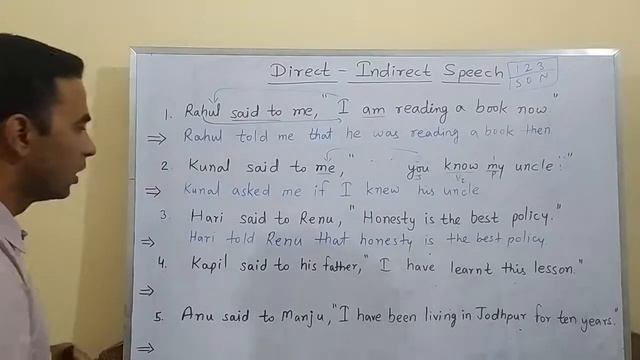 Direct - Indirect Speech
1 2 3
S O N
1. Rahul said to me, "I am reading a book now."
⇒ Rahul told me that he was reading a book then
2. Kunal said to me, " you know my uncle."
⇒ Kunal asked me if I knew his uncle
3. Hari said to Renu, "Honesty is the best policy."
⇒ Hari told Renu that honesty is the best policy.
4. Kapil said to his father, "I have learnt this lesson."
⇒
5. Anu said to Manju, "I have been living in Jodhpur for ten years."
⇒